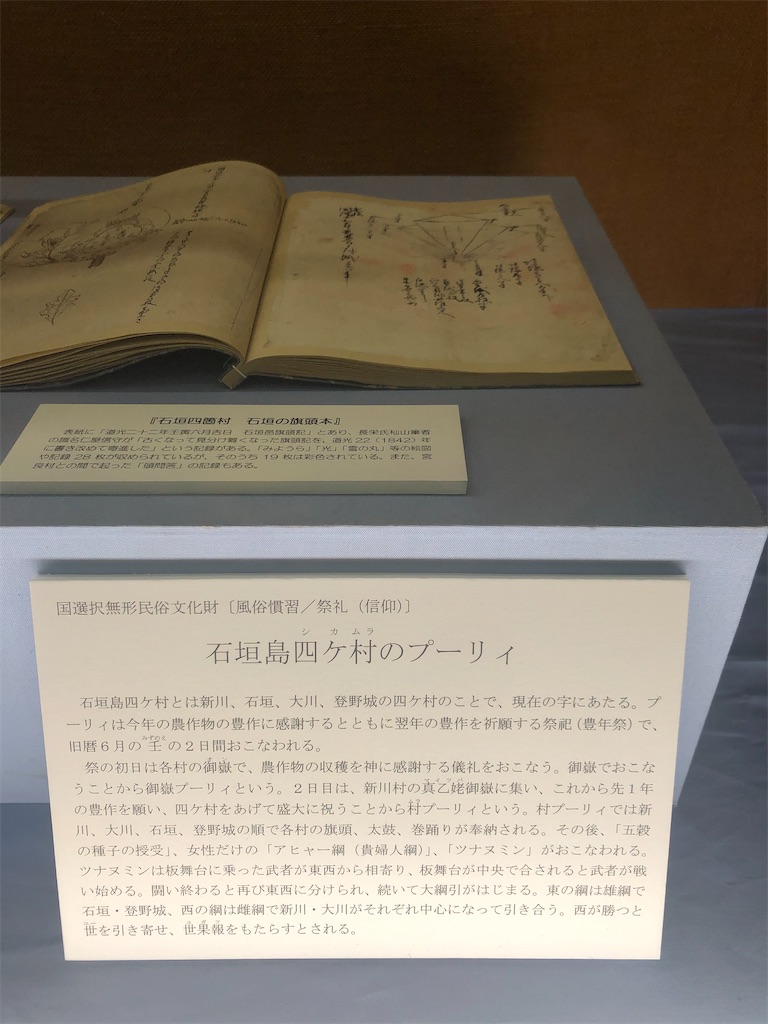 『石垣四箇村　石垣の旗頭本』
表紙に「道光二十二年壬寅六月吉日　石垣邑旗頭記」とあり、長栄氏杣山筆者
の識名仁屋信守が「古くなって見分け難くなった旗頭記を、道光22（1842）年
に書き改めて寄進した」という記録がある。「みようら」「光」「雲の丸」等の絵図
や記録28枚が収められているが、そのうち19枚は彩色されている。また、宮
良村との間で起った「頭問答」の記録もある。
国選択無形民俗文化財〔風俗慣習／祭礼（信仰）〕
シカムラ
石垣島四ケ村のプーリィ
石垣島四ケ村とは新川、石垣、大川、登野城の四ケ村のことで、現在の字にあたる。プ
ーリィは今年の農作物の豊作に感謝するとともに翌年の豊作を祈願する祭祀（豊年祭）で、
みずのえ
旧暦６月の壬の２日間おこなわれる。
祭の初日は各村の御嶽で、農作物の収穫を神に感謝する儀礼をおこなう。御嶽でおこな
うことから御嶽プーリィという。２日目は、新川村の真乙姥御嶽に集い、これから先１年
の豊作を願い、四ケ村をあげて盛大に祝うことから村プーリィという。村プーリィでは新
川、大川、石垣、登野城の順で各村の旗頭、太鼓、巻踊りが奉納される。その後、「五穀
の種子の授受」、女性だけの「アヒャー綱（貴婦人綱）」、「ツナヌミン」がおこなわれる。
ツナヌミンは板舞台に乗った武者が東西から相寄り、板舞台が中央で合されると武者が戦
い始める。闘い終わると再び東西に分けられ、続いて大綱引がはじまる。東の綱は雄綱で
石垣・登野城、西の綱は雌綱で新川・大川がそれぞれ中心になって引き合う。西が勝つと
世を引き寄せ、世果報をもたらすとされる。